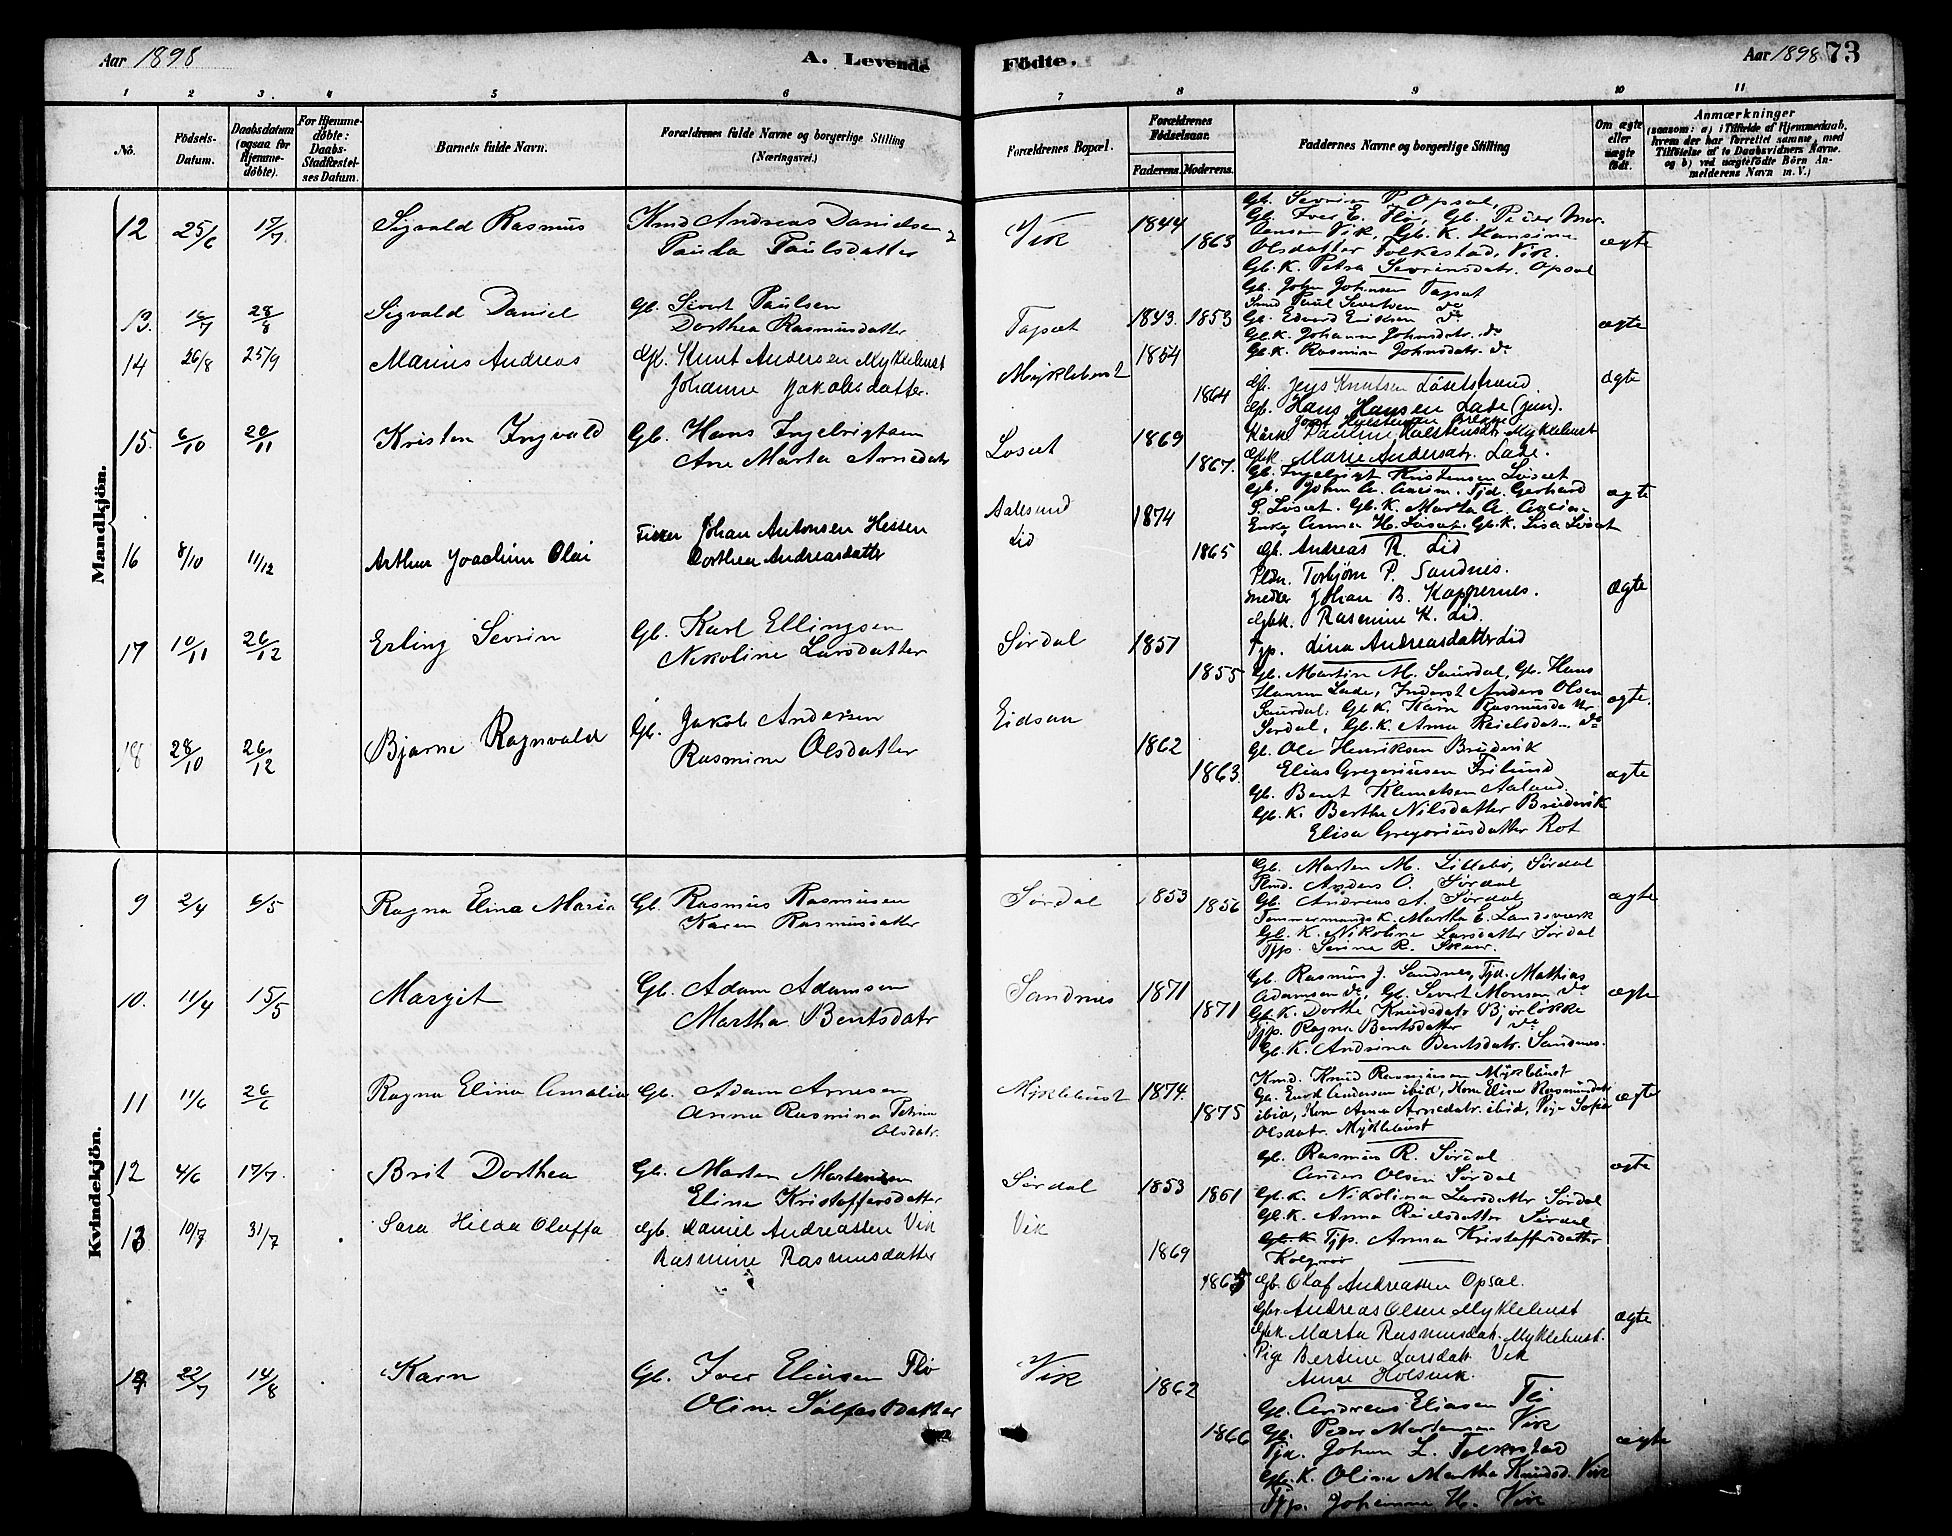 Aar 1898
A. Levende
Födte.
Aar 1898
73
1 2 3. 4 5 6
7 8 9 10 11
No.
Födsels-Datum.
Daabsdatum (ogsaa for Hjemme-döbte).
For Hjemme-döbte: Daabs-Stadfæstel-ses Datum.
Barnets fulde Navn.
Forældrenes fulde Navne og borgerlige Stilling (Næringsvei.)
Forældrenes Bopæl.
Forældrenes Födselsaar.
Faderens. Moderens.
Faddernes Navne og borgerlige Stilling
Om ægte eller uægte födt.
Anmærkninger
(saasom: a) i Tilfælde af Hjemmedaab,
hvem der har forrettet samme, med
Tilföielse af to Daabsvidners Navne,
og b) ved uægtefödte Börn An-
melderens Navn m. V.)
Mandkjön.
12 25/6 17/7. Sigvald Rasmus
Knud Andreas Danielsen
Paula Paulsdatter
Vik 1844 1863
Gb. Severin P. Opsal,
Gb. Iver E. Flö, Gb. Peder Mor-
tensen Vik, Gb. K. Hansine
Olsdatter Folkestad, Vik.
Gb. K. Petra Sevrinsdatr. Opsal
ægte
13. 16/7 28/8 Sigvald Daniel
Gb. Sivert Paulsen
Dorthea Rasmusdatter
Tapet 1843. 1853
Gb. John Johnsen Tapet
Smd Paul Sivertsen do
Gb. Edvard Eriksen do
Gb.K. Johanne Johnsdatr. do
Gb.K. Rasmine Johnsdatr. do
ægte
14 26/8 25/9 Marius Andreas
Gb. Knut Andersen Myklebust
Johanne Jakobsdatter.
Myklebust 1854 1864
Gb. Jens Knutsen Löselstrand
Gb. Hans Hansen Lade (jun).
Pauline Halstensdtr Myklebust
Gbk. Marie Andersdtr. Lade.
ægte
15. 6/10 20/11 Kristen Ingvald
Gb. Hans Ingebrigtsen
Ane Marta Arnedatr
Löset 1869 1867.
Gb. Ingebrigt Kristensen Löset
Gb. John A. Aarim. Tjd. Gerhard
S. Löset. Gb.K. Marta A. Aarim
Enke Anna H. Löset. Gb.K. Lisa Löset
ægte
16 8/10 11/12 Arthur Joachim Olai
Fisker Johan Antonsen Hessen
Dorthea Andreasdatter
Aalesund
Lid
1874 1865
Gb. Andreas R. Lid
Torbjørn P. Sandnes.
Johan B. Koppernes.
Gbk. Rasmine K. Lid.
Tjp. Lina Andreasdatter Lid
ægte
17 10/11 26/12 Erling Sevrin
Gb. Karl Ellingsen
Nikoline Larsdatter
Sørdal 1851 1855
Gb. Martin M. Saurdal, Gb. Hans
Hansen Lade, Inderst Anders Olsen
Saurdal. Gb.K. Karn Rasmusdatter
Sørdal, Gb.K. Anna Reielsdatr. do
ægte.
18 28/10 26/12 Bjarne Ragnvald
Gb. Jakob Andersen
Rasmine Olsdatter
Eidsaa 1862 1863.
Gb. Ole Henriksen Brudevik
Elias Gregoriussen Frilund
Gb. Bent Klemetsen Aaland
Gb. K. Berthe Nilsdatter Brudevik
Elisa Gregoriusdatter Rot
ægte
Kvindekjön.
9 2/4 6/5 Ragna Elina Maria
Gb. Rasmus Rasmusen
Karen Rasmusdatter
Sørdal 1853 1856
Gb. Morten M. Lillebø, Sørdal
Anders O. Sørdal
Gb. Andreas A. Sørdal
Tømmermands K. Martha E. Landsværk
Gb. K. Nikoline Larsdatter Sørdal
Tjp. Serine R. Skaar.
ægte
10. 11/4 15/5 Margit
Gb. Adam Adamsen
Martha Bentsdatr
Sandnes 1871 1871
Gb. Rasmus J. Sandnes, Tjd. Mathias
Adamsen do, Gb. Sivert Monsen do
Gb.K. Dorthe Knudsdatr Bjørløkke
Tjp. Ragna Bentsdatter do
Gb.K. Andrina Bentsdatr. Sandnes.
ægte
11 11/6 26/6 Ragna Elina Amalia
Gb. Adam Arnesen
Anna Rasmina Petrine
Olsdatr.
Myklebust 1874. 1875
Kmd. Knud Rasmusen Myklebust
Gb. Enok Andersen ibid, Kone Elisa Rasmusdatr
ibid, Kone Anna Arnedatr. ibid, Pige Sofie
Olsdatr. Myklebust
ægte
12 4/6 17/7. Brit Dorthea
Gb. Morten Mortensen
Eline Kristoffersdatter
Sørdal 1853 1861
Gb. Rasmus R. Sørdal
Anders Olsen Sørdal
Gb.K. Nikolina Larsdatter Sørdal
Gb.K. Anna Reielsdatter Sørdal
Gb.K Tjp. Anna Kristoffersdatter
ægte
13 10/7 31/7 Sara Hilda Oluffa
Gb. Daniel Andreassen Vik
Rasmine Rasmusdatter
Vik 1869 1865
Gb. Olaf Andreassen Opsal.
Gbr Andreas Olsen Myklebust
Gbk. Marta Rasmusdat. Myklebust.
Pige Bertine Larsdatt. Vik
Anne Holsvik.
ægte
14 22/7 14/8 Karn
Gb. Iver Eliasen Flö
Oline Sølfestdatter
Vik 1862 1866
Gb. Andreas Eliasen Flö
Gb. Peder Mortensen Vik
Tjd. Johan L. Folkestad
Gb.K. Olina Martha Knudsd. Vik
Tjp. Johanna H. Vik
ægte